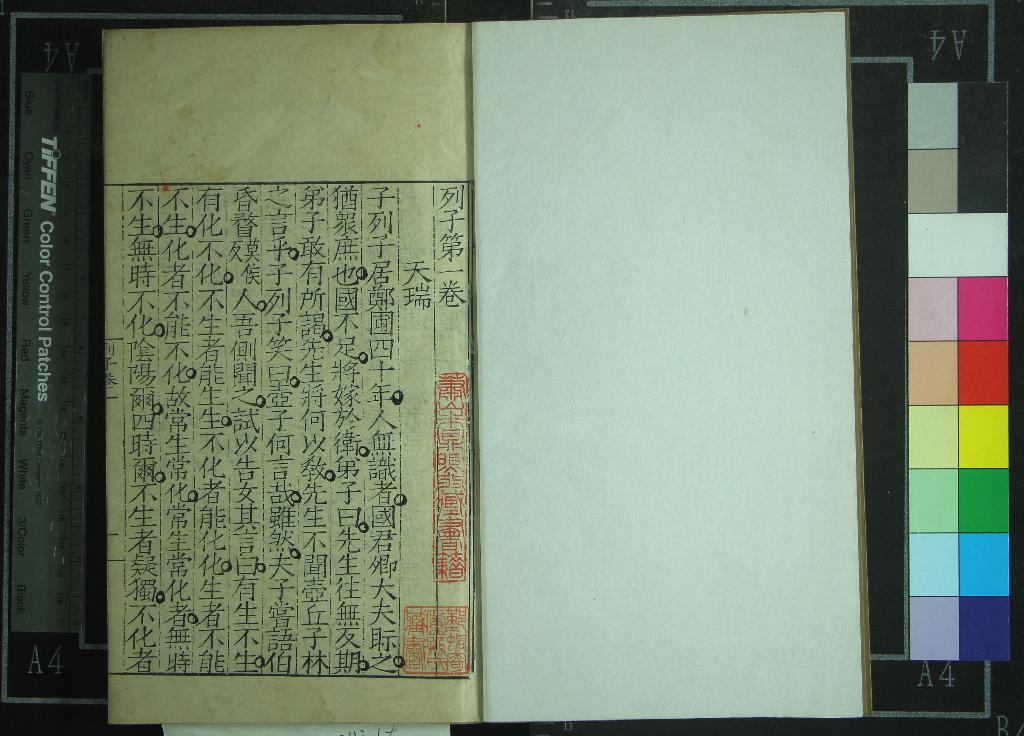 列子第一卷
天瑞
子列子居鄭圃四十年人無識者國君卿大夫眎之
猶眾庶也國不足將嫁於衛弟子曰先生往無反期
弟子敢有所謁先生將何以教先生不聞壺丘子林
之言乎子列子笑曰壺子何言哉雖然夫子嘗語伯
昏瞀人吾側聞之試以告女其言曰有生不生
有化不化不生者能生生不化者能化化生者不能
不生化者不能不化故常生常化常生常化者無時
不生無時不化陰陽爾四時爾不生者疑獨不化者
A4
A4
A4
A4
TIFFEN Color Control Patches
Blue
Cyan
Green
Yellow
Red
Magenta
White
3/Color
Black